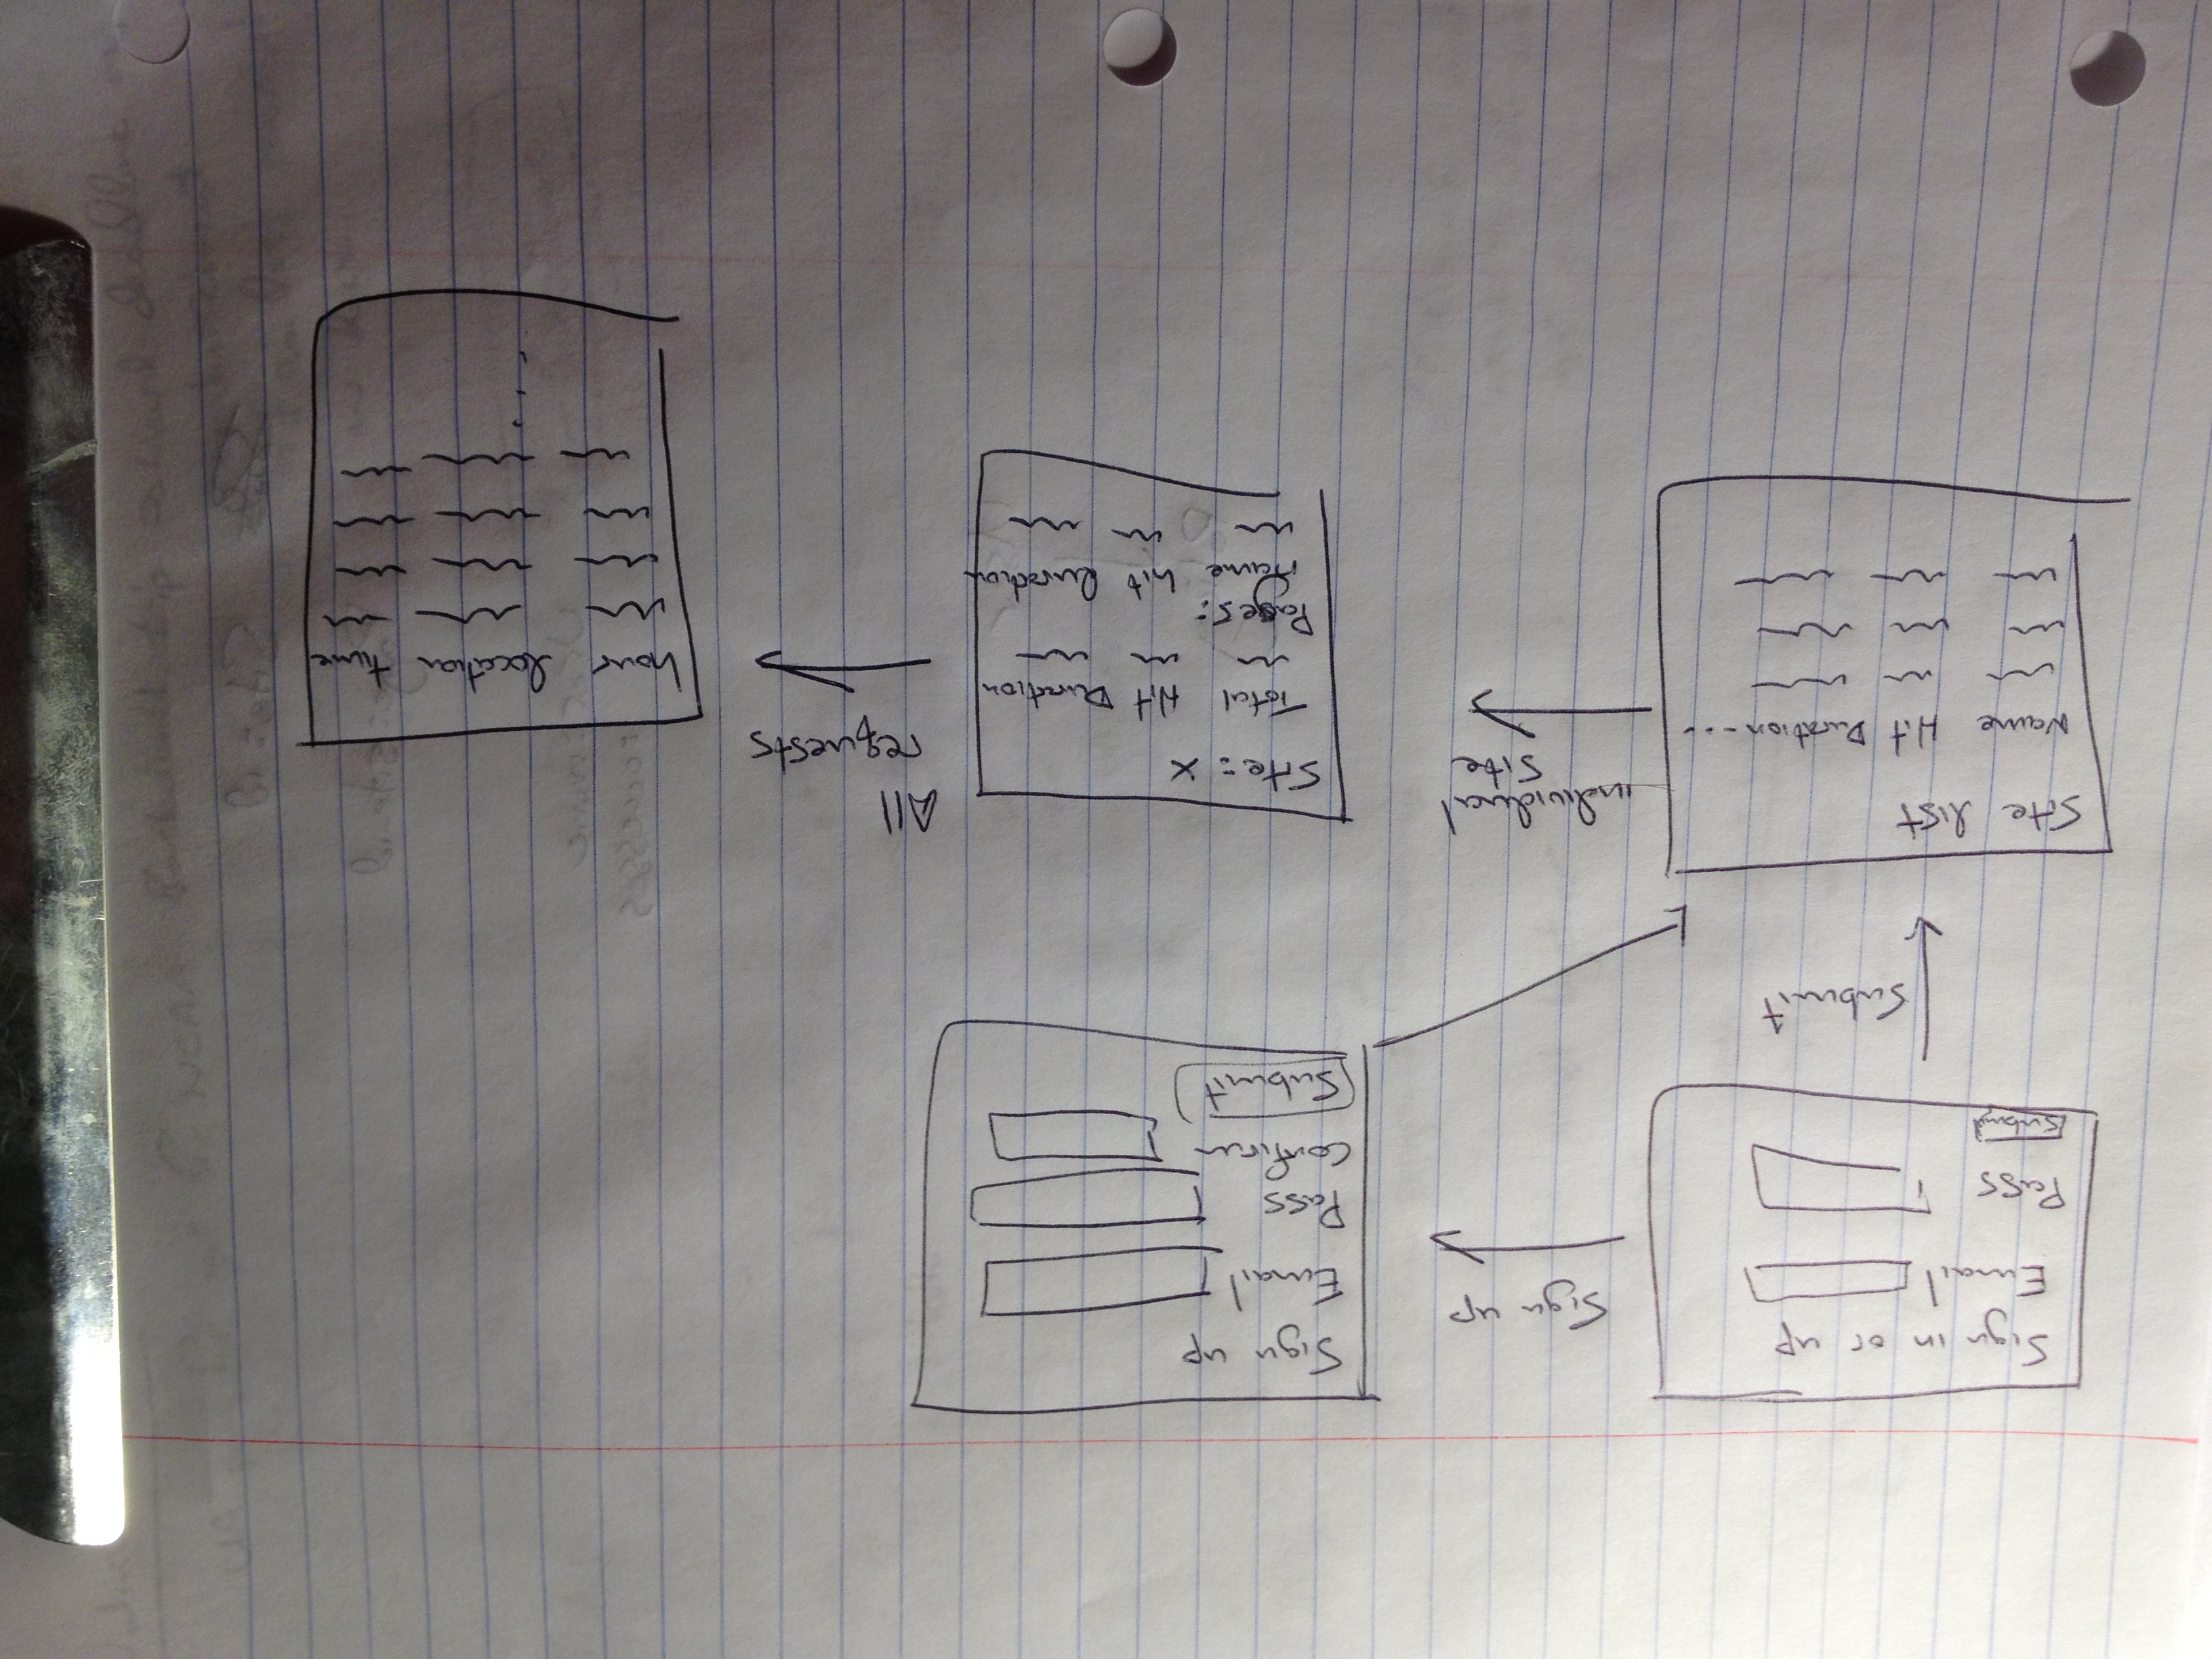 Sign in or up
Email
Pass
Submit
Sign up
Sign up
Email
Pass
Confirm
Submit
Submit
Site list
Name Hit Duration...
individual
Site
Site: X
Total Hit Duration
Pages:
name hit duration
All
requests
hour location time